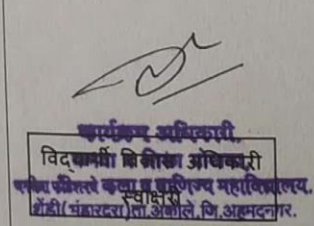 कार्यक्रम अधिकारी,
विद्यार्थी विकास अधिकारी
कला व वाणिज्य महाविद्यालय,
स्वाक्षरी
शेंडी(भंडारदरा)ता.अकोले,जि.अहमदनगर.